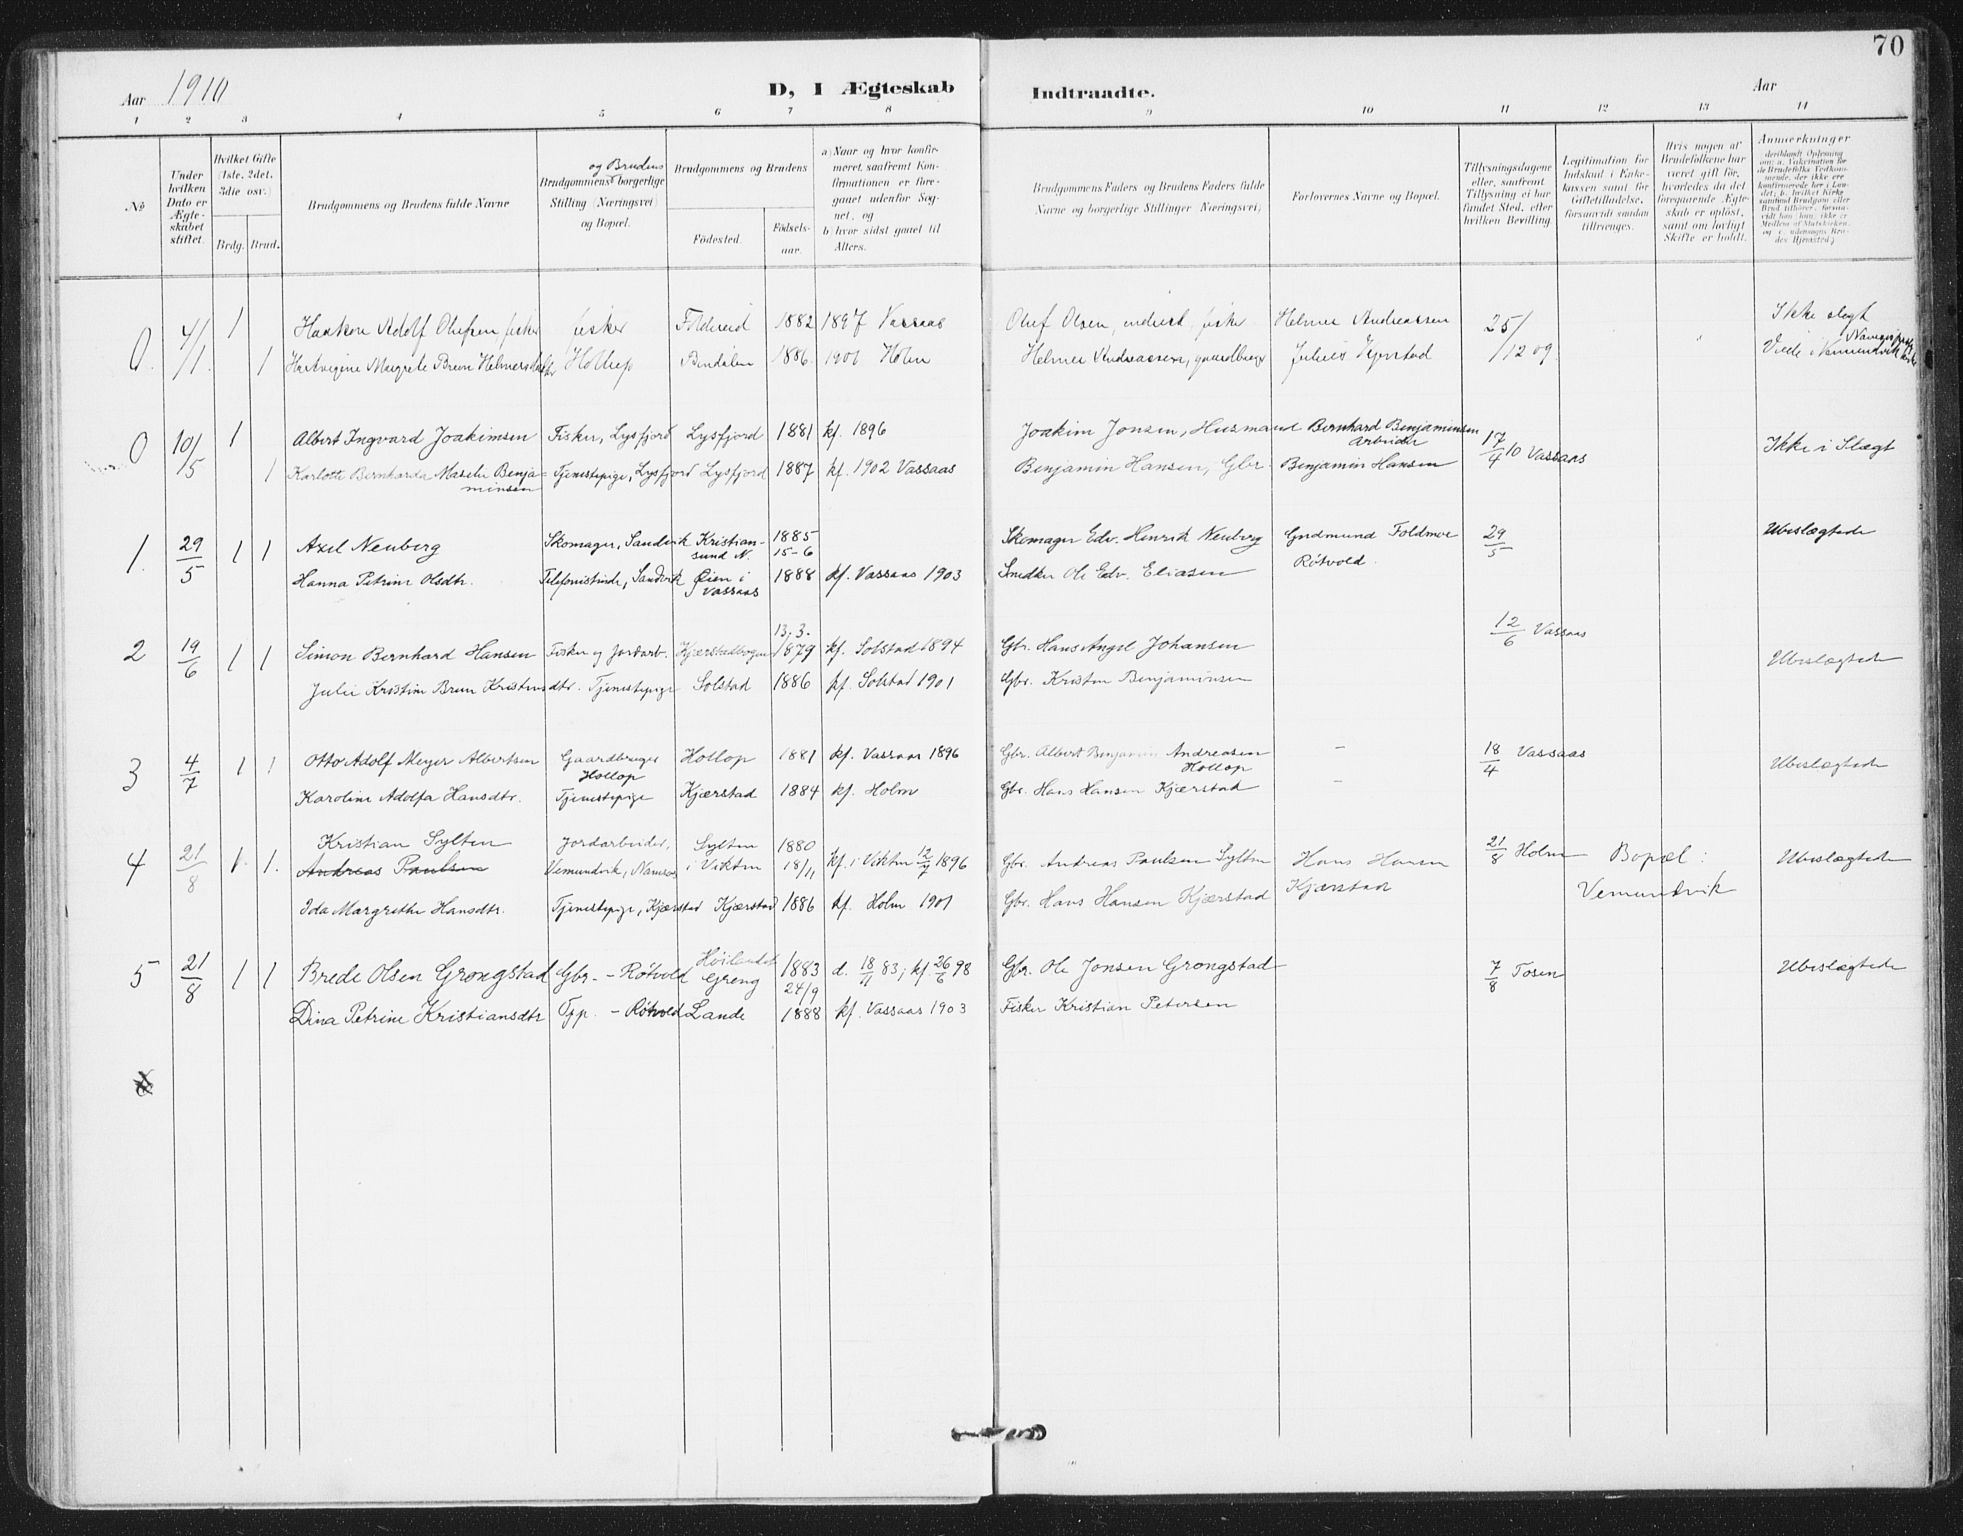 70
Aar 1910
D, I Ægteskab Indtraadte.
Aar
1 2 3 4 5 6 7 8 9 10 11 12 13 14
№
Under hvilken Dato er Ægteskabet stiftet.
Hvilket Gifte (1ste, 2det, 3die osv.)
Brdg. Brud.
Brudgommens og Brudens fulde Navne
og Brudens
Brudgommens borgerlige Stilling (Næringsvei) og Bopæl.
Brudgommens og Brudens
Fødested.
Fødselsaar.
a) Naar og hvor konfirmeret, saafremt Konfirmationen er foregaaet udenfor Sognet, og
b) hvor sidst gaaet til Alters.
Brudgommens Faders og Brudens Faders fulde Navne og borgerlige Stillinger (Næringsvei)
Forlovernes Navne og Bopæl.
Tillysningsdagene eller, saafremt Tillysning ei har fundet Sted, efter hvilken Bevilling.
Legitimation for Indskud i Enkekassen samt for Giftetilladelse, forsaavidt saadan tiltrænges.
Hvis nogen af Brudefolkene har været gift før, hvorledes da det foregaaende Ægteskab er opløst, samt om lovligt Skifte er holdt.
Anmerkninger
0. 4/1. 1 Haakon Adolf Olufsen fisker fisker Foldereid 1882 1897 Vassaas Oluf Olsen, inderst, fisker Helmer Andreassen 25/12 09. Ikke slegt
1 Hartvigine Margrete Breun Helmersdatter Hollup Bindalen 1886 1901 Holm Helmer Andreassen, gaardbruger Julius Kjerstad Viede i Vemundvik
0 10/15 1 Albert Ingvard Joakimsen Fisker, Lysfjord Lysfjord 1881 kf. 1896 Joakim Jonsen, Husmand Bernhard Benjaminsen Arbeider 17/4 10 Vassaas Ikke i Slægt
1 Karlotte Bernharda Maselie Benjaminsen Tjenestepige, Lysfjord Lysfjord 1887 kf. 1902 Vassaas Benjamin Hansen, Gbr. Benjamin Hansen
1. 29/5 1 1 Axel Neuberg Skomager, Sandvik Kristiansund N. 1885 15-6 Skomager Edv. Henrik Neuberg Gudmund Foldmoe 29/5 Ubeslægtede
Hanna Petrine Olsdtr. Telefonistinde, Sandvik Øien i Vassaas 1888 kf. Vassaas 1903 Snedker Ole Edv. Eliasen Røtvold.
2 19/6 1 1 Simon Bernhard Hansen Fisker og Jordarb. Kjærstadbogen 13.3. 1879 kf. Solstad 1894 Gbr. Hans Angel Johansen 12/6 Vassaas Ubeslægtede
Julie Kristine Brun Kristensdtr. Tjenestepige Solstad 1886 kf. Solstad 1901 Gbr. Kristen Benjaminsen
3 4/7 1 1 Otto Adolf Meyer Albertsen Gaardbruger Hollop Hollop 1881 kf. Vassaas 1896 Gbr. Albert Benjamin Andreasen Hollop – 18/4 Vassaas Ubeslægtede
Karoline Adolfa Hansdtr. Tjenestepige Kjærstad 1884 kf. Holm Gbr. Hans Hansen Kjærstad –
4 21/8 1. 1. Kristian Sylten Andreas Paulsen Jordarbeider, Vemundvik, Namsos Sylten i Vikten 1880 18/11 kf. i Vikten 12/7 1896 Gbr. Andreas Paulsen Sylten Hans Hansen 21/8 Holm Bopæl: Ubeslægtede
Ida Margrethe Hansdtr. Tjenestepige, Kjærstad Kjærstad 1886 kf. Holm 1901 Gbr. Hans Hansen Kjærstad Kjærstad Vemundvik
5 21/8 1 1 Brede Olsen Grongstad Gbr. – Røtvold Høilandet Grong 1883 24/9 d. 18/11 83; kf. 26/6 98 Gbr. Ole Jonsen Grongstad 7/8 Tosen Ubeslægtede
Dina Petrine Kristiansdtr Tpp. – Røtvold Lande 1888 kf. Vassaas 1903 Fisker Kristian Petersen